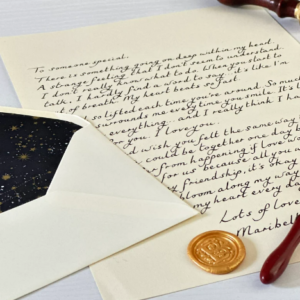 To someone special,
There is something going on deep within my head.
A strange feeling that I don't seem to understand.
I don't really know what to do. When you start to
talk, I hardly find a word to say. It's like I'm
out of breath. My heart beats so fast.
so lifted each time you're around. So much
surrounds me every time you smile. It's l
everything and I really think I ha
you. I love you.
d wish you felt the same way
could be together one day b
from happening if love w
for us because all you a
my friendship, it's okay
bloom along my way
my heart every da
Lots of love
Maribell